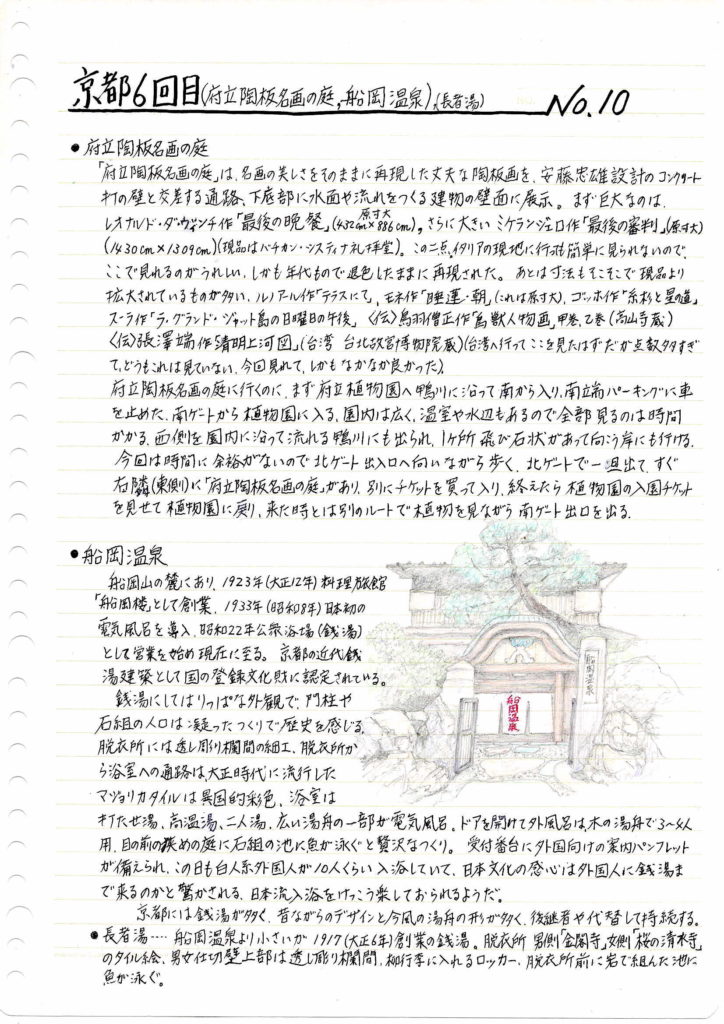 京都6回目(府立陶板名画の庭,船岡温泉),(長者湯) No.10
● 府立陶板名画の庭
「府立陶板名画の庭」は、名画の美しさをそのままに再現した丈夫な陶板画を、安藤忠雄設計のコンクリート
打の壁と交差する通路、下底部に水面や流れをつくる建物の壁面に展示。まず巨大なのは、
レオナルド・ダ・ヴィンチ作「最後の晩餐」原寸大(432cm×886cm)。さらに大きいミケランジェロ作「最後の審判」(原寸大)
(1430cm×1309cm)(現品はバチカン・システィナ礼拝堂)。この二点、イタリアの現地に行っても簡単に見られないので、
ここで見れるのがうれしい、しかも年代もので退色したままに再現された。あとは寸法もそこそこで現品より
拡大されているものが多い、ルノアール作「テラスにて」、モネ作「睡蓮・朝」(これは原寸大)、ゴッホ作「糸杉と星の道」、
スーラ作「ラ・グランド・ジャット島の日曜日の午後」〈伝〉鳥羽僧正作「鳥獣人物画」甲巻、乙巻(高山寺蔵)
〈伝〉張澤端作「清明上河図」(台湾 台北故宮博物院蔵)(台湾へ行ってここを見たはずだが点数多すぎ
て、どうもこれは見ていない、今回見れて、しかもなかなか良かった)
府立陶板名画の庭に行くのに、まず府立植物園へ鴨川に沿って南から入り、南立端パーキングに車
を止めた、南ゲートから植物園に入る、園内は広く、温室や水辺もあるので全部見るのは時間
かかる、西側を園内に沿って流れる鴨川にも出られ、1ヶ所飛び石状があって向こう岸にも行ける。
今回は時間に余裕がないので北ゲート出入口へ向いながら歩く、北ゲートで一旦出て、すぐ
右隣(東側)に「府立陶板名画の庭」があり、別にチケットを買って入り、終えたら植物園の入園チケット
を見せて植物園に戻り、来た時とは別のルートで植物を見ながら南ゲート出口を出る。
● 船岡温泉
船岡山の麓にあり、1923年(大正12年)料理旅館
「船岡楼」として創業、1933年(昭和8年)日本初の
電気風呂を導入、昭和22年公衆浴場(銭湯)
として営業を始め現在に至る。京都の近代銭
湯建築として国の登録文化財に認定されている。
銭湯にしてはりっぱな外観で、門柱や
石組の入口は凝ったつくりで歴史を感じる、
脱衣所には透し彫り欄間の細工、脱衣所か
ら浴室への通路は、大正時代に流行した
マジョリカタイルは異国的彩色、浴室は
打たせ湯、高温湯、二人湯、広い湯舟の一部が電気風呂。ドアを開けて外風呂は、木の湯舟で3〜4人
用、目の前の狭めの庭に石組の池に魚が泳ぐと贅沢なつくり。受付番台に外国向けの案内パンフレット
が備えられ、この日も白人系外国人が10人くらい入浴していて、日本文化の感心は外国人に銭湯ま
で来るのかと驚かされる、日本流入浴をけっこう楽しておられるようだ。
京都には銭湯が多く、昔ながらのデザインと今風の湯舟の形が多く、後継者や代替して持続する。
● 長者湯‥‥船岡温泉より小さいが1917(大正6年)創業の銭湯。脱衣所 男側「金閣寺」、女側「桜の清水寺」
のタイル絵、男女仕切壁上部は透し彫り欄間、柳行李に入れるロッカー、脱衣所前に岩で組んだ池に
魚が泳ぐ。
船岡温泉
船岡温泉